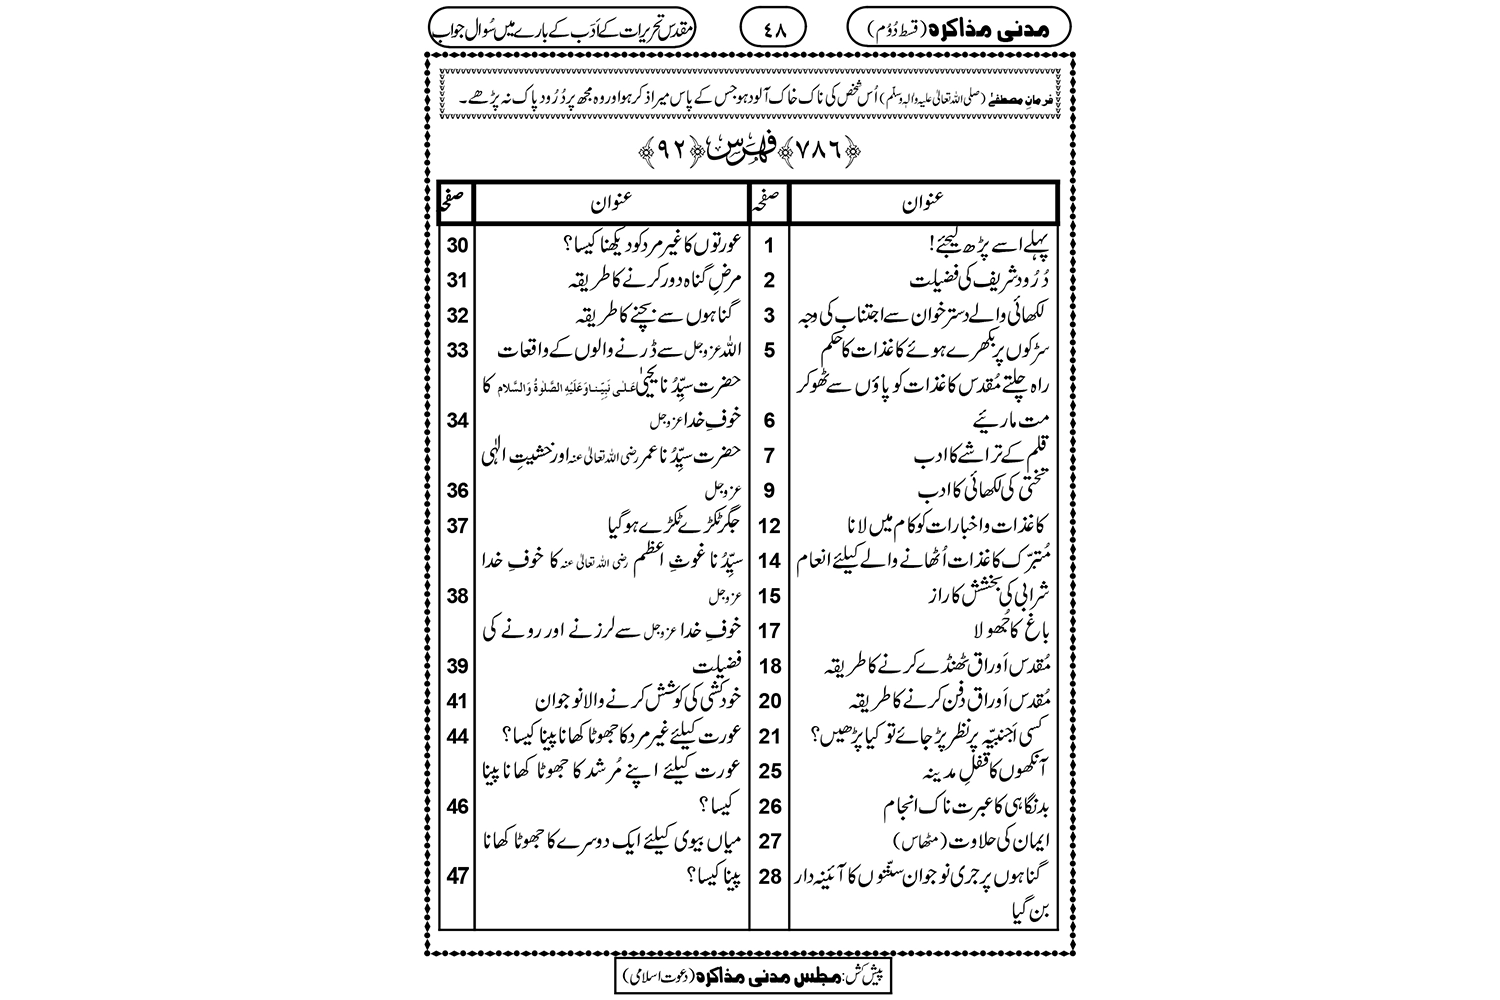 مدنی مذاکرہ (قسط دُوُم)
٤٨
مقدس تحریرات کے اَدَب کے بارے میں سُوال جواب
فرمانِ مصطفیٰ (صلی اللہ تعالیٰ علیہ والہٖ وسلّم) اُس شخص کی ناک خاک آلود ہو جس کے پاس میرا ذکر ہو اور وہ مجھ پر دُرُود پاک نہ پڑھے۔
﴿٧٨٦﴾ فہرس ﴿٩٢﴾
عنوان صفحہ
پہلے اسے پڑھ لیجئے! 1
دُرُود شریف کی فضیلت 2
لکھائی والے دستر خوان سے اجتناب کی وجہ 3
سڑکوں پر بکھرے ہوئے کاغذات کا حکم 5
راہ چلتے مُقدس کاغذات کو پاؤں سے ٹھوکر
مت ماریئے 6
قلم کے تراشے کا ادب 7
تختی کی لکھائی کا ادب 9
کاغذات و اخبارات کو کام میں لانا 12
مُتبرّک کاغذات اُٹھانے والے کیلئے انعام 14
شرابی کی بخشش کا راز 15
باغ کا جُھولا 17
مُقدس اَوراق ٹھنڈے کرنے کا طریقہ 18
مُقدس اَوراق دفن کرنے کا طریقہ 20
کسی اَجنبیّہ پر نظر پڑ جائے تو کیا پڑھیں؟ 21
آنکھوں کا قفلِ مدینہ 25
بدنگاہی کا عبرت ناک انجام 26
ایمان کی حلاوت (مٹھاس) 27
گناہوں پر جری نوجوان سنّتوں کا آئینہ دار 28
بن گیا
عنوان صفحہ
عورتوں کا غیر مرد کو دیکھنا کیسا؟ 30
مرضِ گناہ دور کرنے کا طریقہ 31
گناہوں سے بچنے کا طریقہ 32
اللہ عزوجل سے ڈرنے والوں کے واقعات 33
حضرت سیِّدُنا یحییٰ عَلٰی نَبِیِّنا وَعَلَیْہِ الصَّلٰوۃُ وَالسَّلام کا
خوفِ خدا عزوجل 34
حضرت سیِّدُنا عمر رضی اللہ تعالیٰ عنہ اور خشیتِ الٰہی
عزوجل 36
جگر ٹکڑے ٹکڑے ہو گیا 37
سیِّدُنا غوثِ اعظم رضی اللہ تعالیٰ عنہ کا خوفِ خدا
عزوجل 38
خوفِ خدا عزوجل سے لرزنے اور رونے کی
فضیلت 39
خودکشی کی کوشش کرنے والا نوجوان 41
عورت کیلئے غیر مرد کا جھوٹا کھانا پینا کیسا؟ 44
عورت کیلئے اپنے مُرشد کا جھوٹا کھانا پینا
کیسا؟ 46
میاں بیوی کیلئے ایک دوسرے کا جھوٹا کھانا
پینا کیسا؟ 47
پیش کش: مجلس مدنی مذاکرہ (دعوت اسلامی)